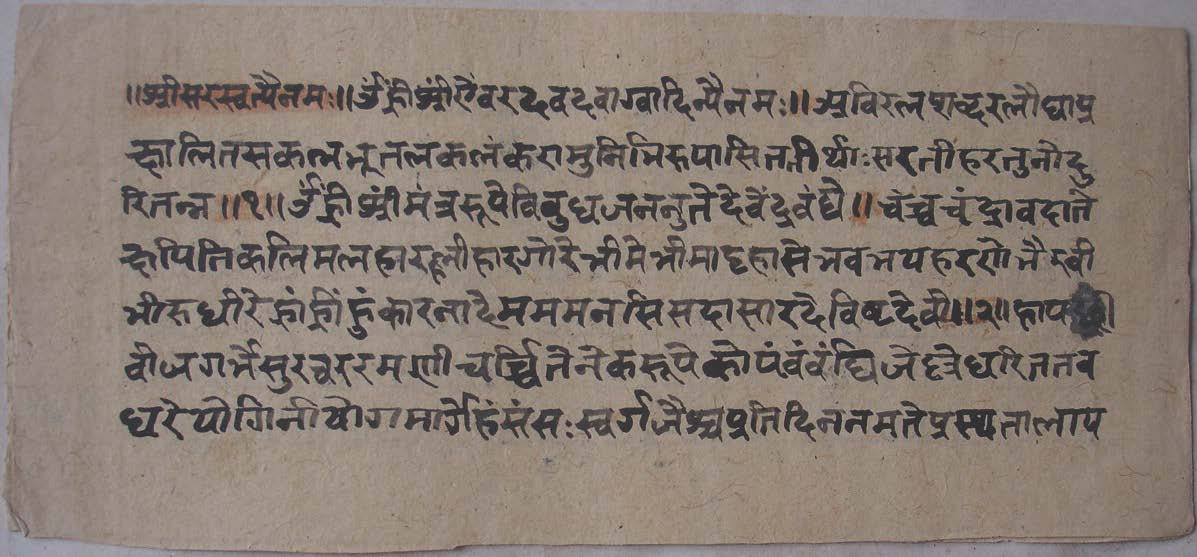 ॥श्रीसरस्वत्यैनमः॥ ॐह्रीश्रींऐंवरदवदवाग्वादिन्यैनमः॥ अविरलशब्दरलौघाप्र
क्षालितसकलभूतलकलंकरामुनिभिरुपासिततीर्थाःसरतीहरतुनोदु
रितन्न॥१॥ ॐह्रीश्रींमंत्ररूपेविबुधजननुतेदेवेंद्रवंद्ये॥ चंचच्चंद्रावदाते
क्षपितिकलिमलहारनीहारगोरेभीमेभीमाट्टहासेभवभयहरणेभैरवी
भीरुधीरेह्रांह्रींह्रुंकारनादेमममनसिसदासारदेविष्टदेवी॥२॥ हाप
वीजगर्भेसुरवररमणीचर्च्चितेनेकरूपेकोपंवंवंघिजेधरितितव
धरेयोगिनीयोगमार्गेहंसंसःस्वर्गजैश्चप्रतिदिननमतेप्रस्थतालाप